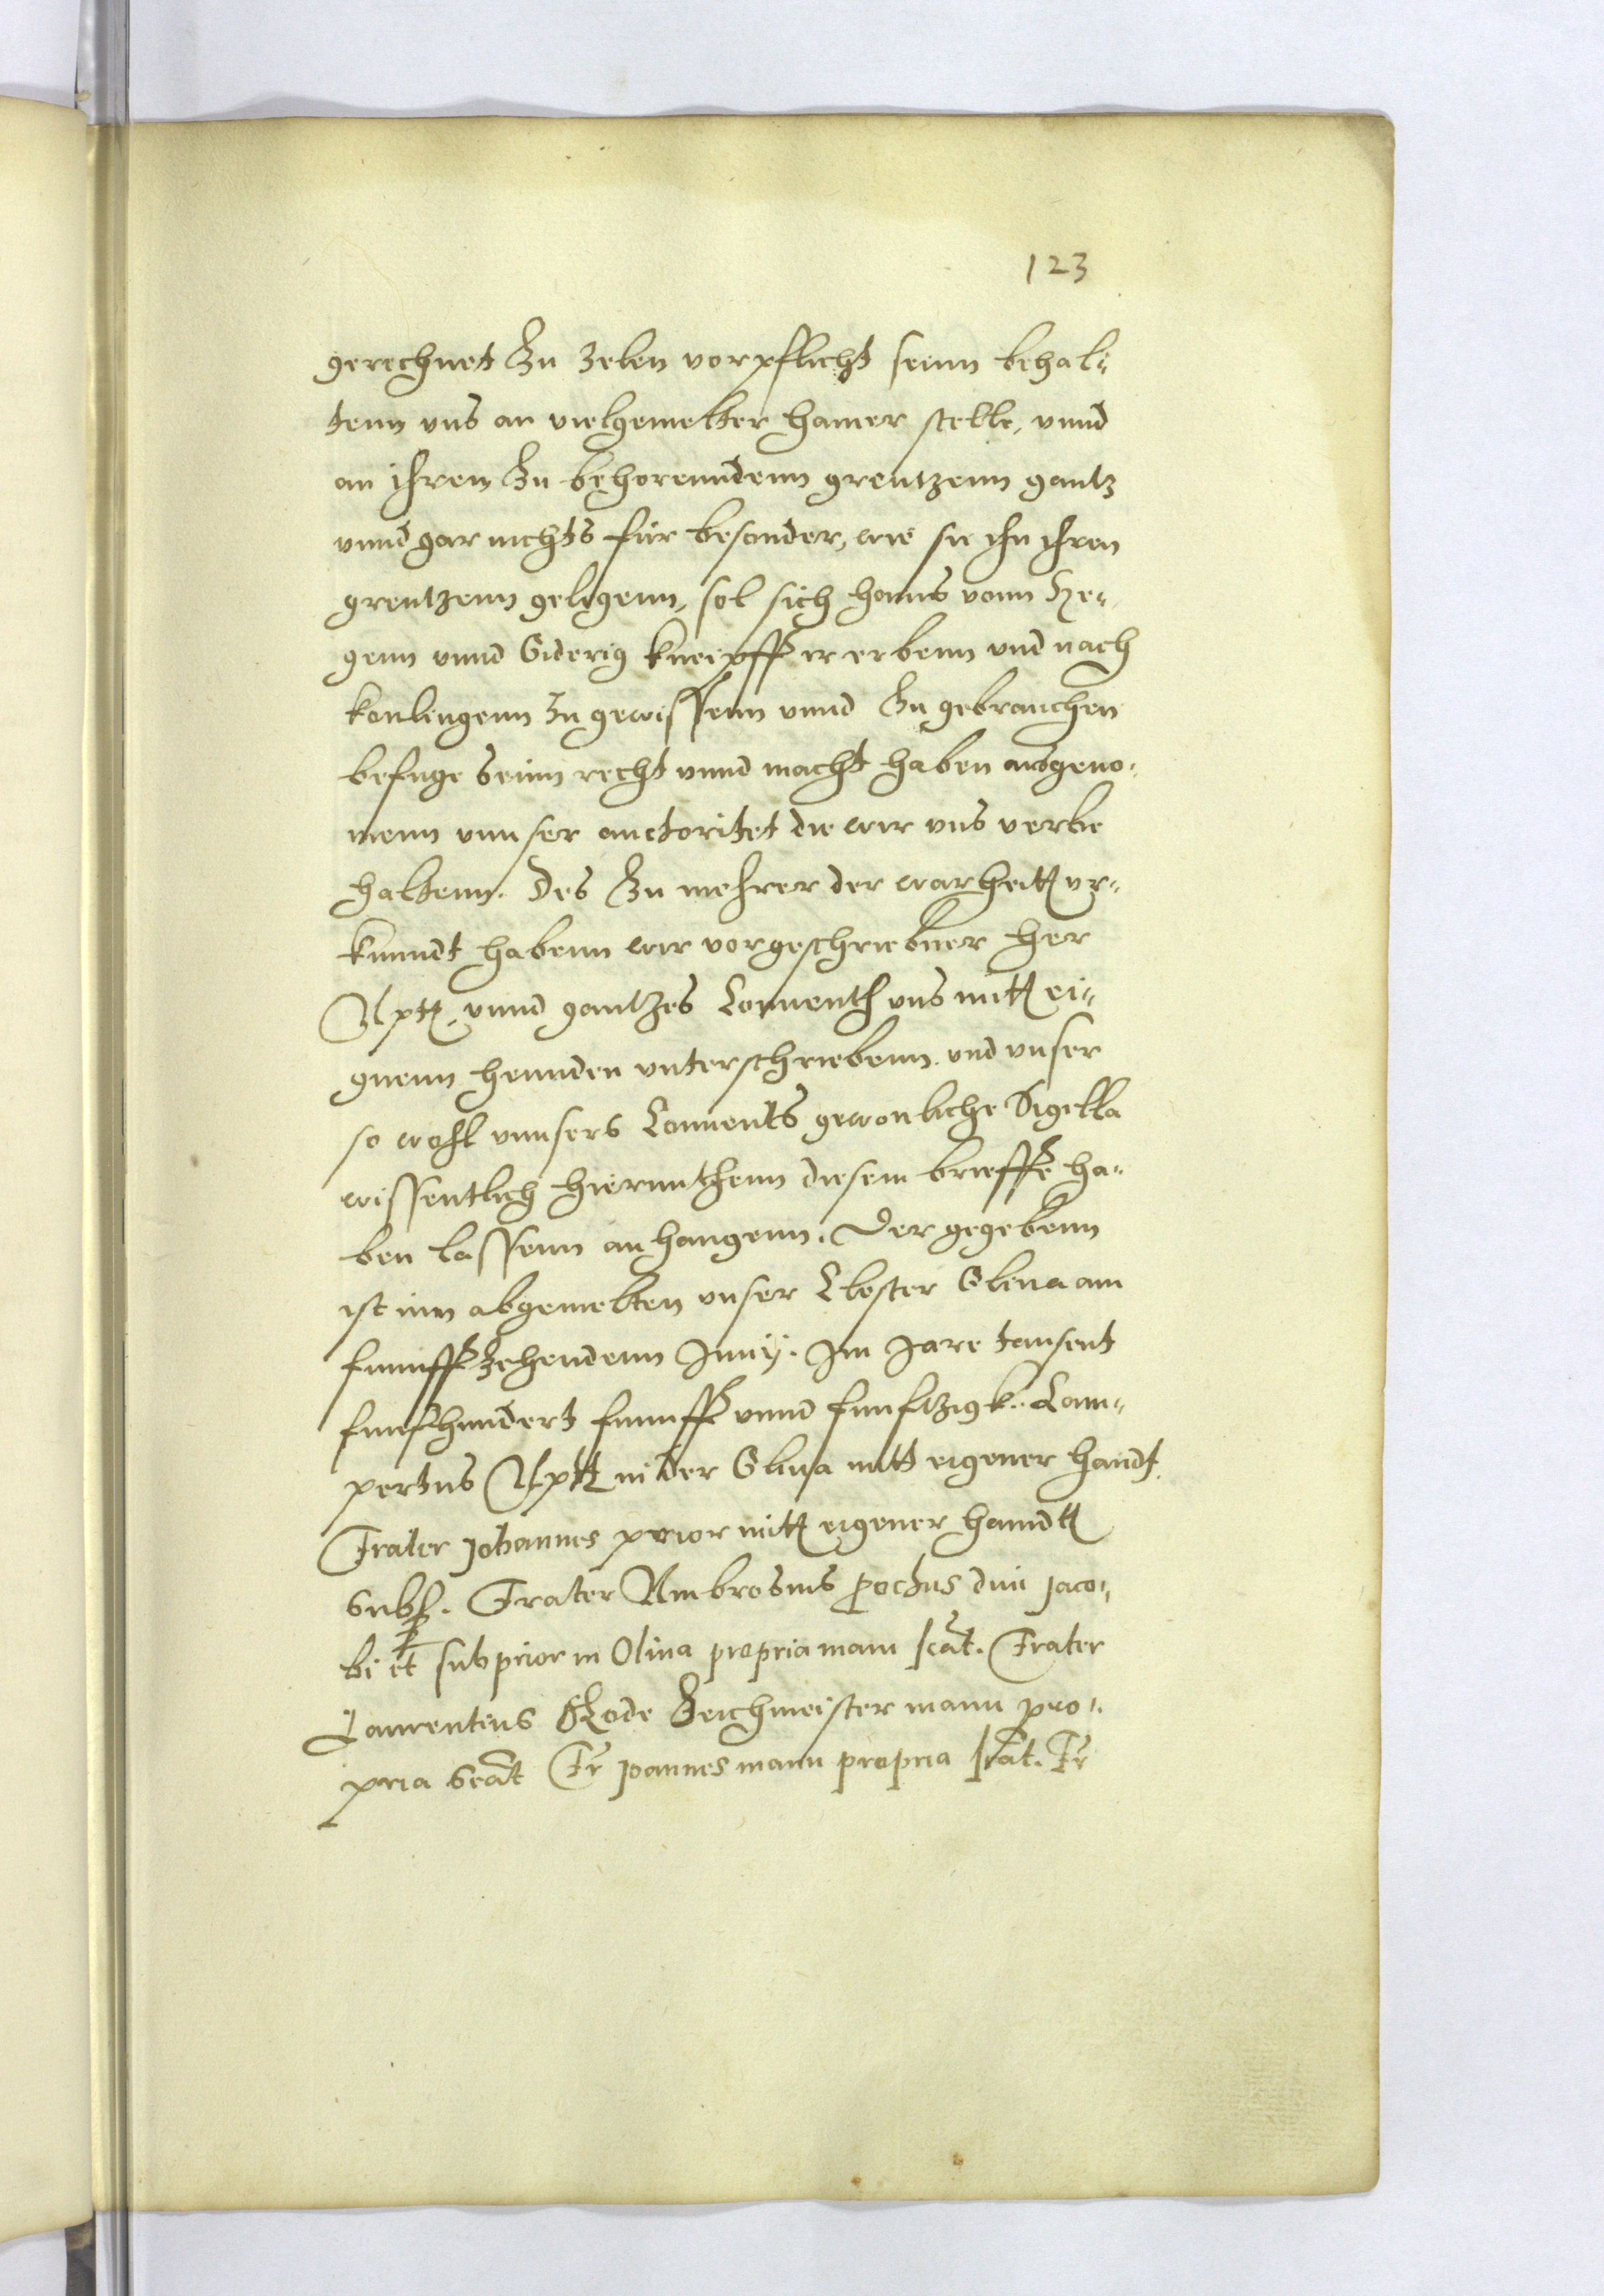 123
gerechnet Zu zelen vorpflicht seinn behal-
tenn vns an vielgemelter hamer stelle, vnnd
an ihren Zu behorenndenn grentzenn gantz
vnnd gar nichts für besonder, wie sie ihn ihren
grentzenn gelegenn, sol sich hanns vonn He-
genn vnnd Giderig kneipff ir erbenn vnd nach
komlingenn zu geniessenn vnnd Zu gebrauchen
befuge seinn recht vnnd macht haben ausgeno-
menn vnnser auctoritet die wir vns verbe
haltenn. Des Zu mehrer der warheitt vr-
kunndt habenn wir vorgeschriebner Her
Aptt, vnnd gantzes Conuenth vns mitt ei-
gnenn hennden vnterschriebenn vnd vnser
so wohl vnnsers Conuents gewonliche Sigella
wissentlich hierunthenn diesem brieffe ha-
ben lassenn anhangenn. Der gegebenn
ist inn abgemelten vnser Closter Oliua am
funnffzehendenn Junij. Im Jare tausent
funfhundert funnff vnnd funfftzigk. Lam-
pertus Aptt in der Oliua mitt eigener handt.
Frater Johannes prior mitt eigener hanndtt
Subs. Frater Ambrosius pochus diui Jaco-
bi et subprior in Oliua propria manu scat. Frater
Laurentius Rode Zeichmeister manu pro-
pria Scat Fr Joannes manu propria scat. Fr